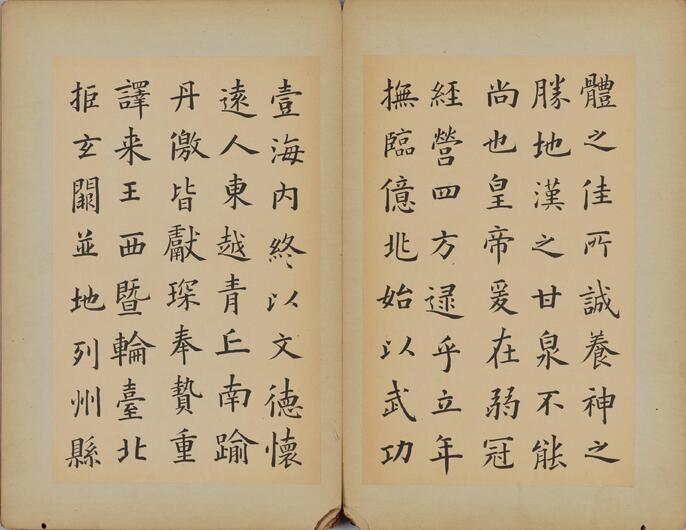 體之佳所誠養神之
勝地漢之甘泉不能
尚也皇帝爰在弱冠
經營四方逯乎立年
撫臨億兆始以武功
壹海內終以文德懷
遠人東越青丘南踰
丹徼皆獻琛奉贄重
譯来王西曁輪臺北
拒玄闕並地列州縣